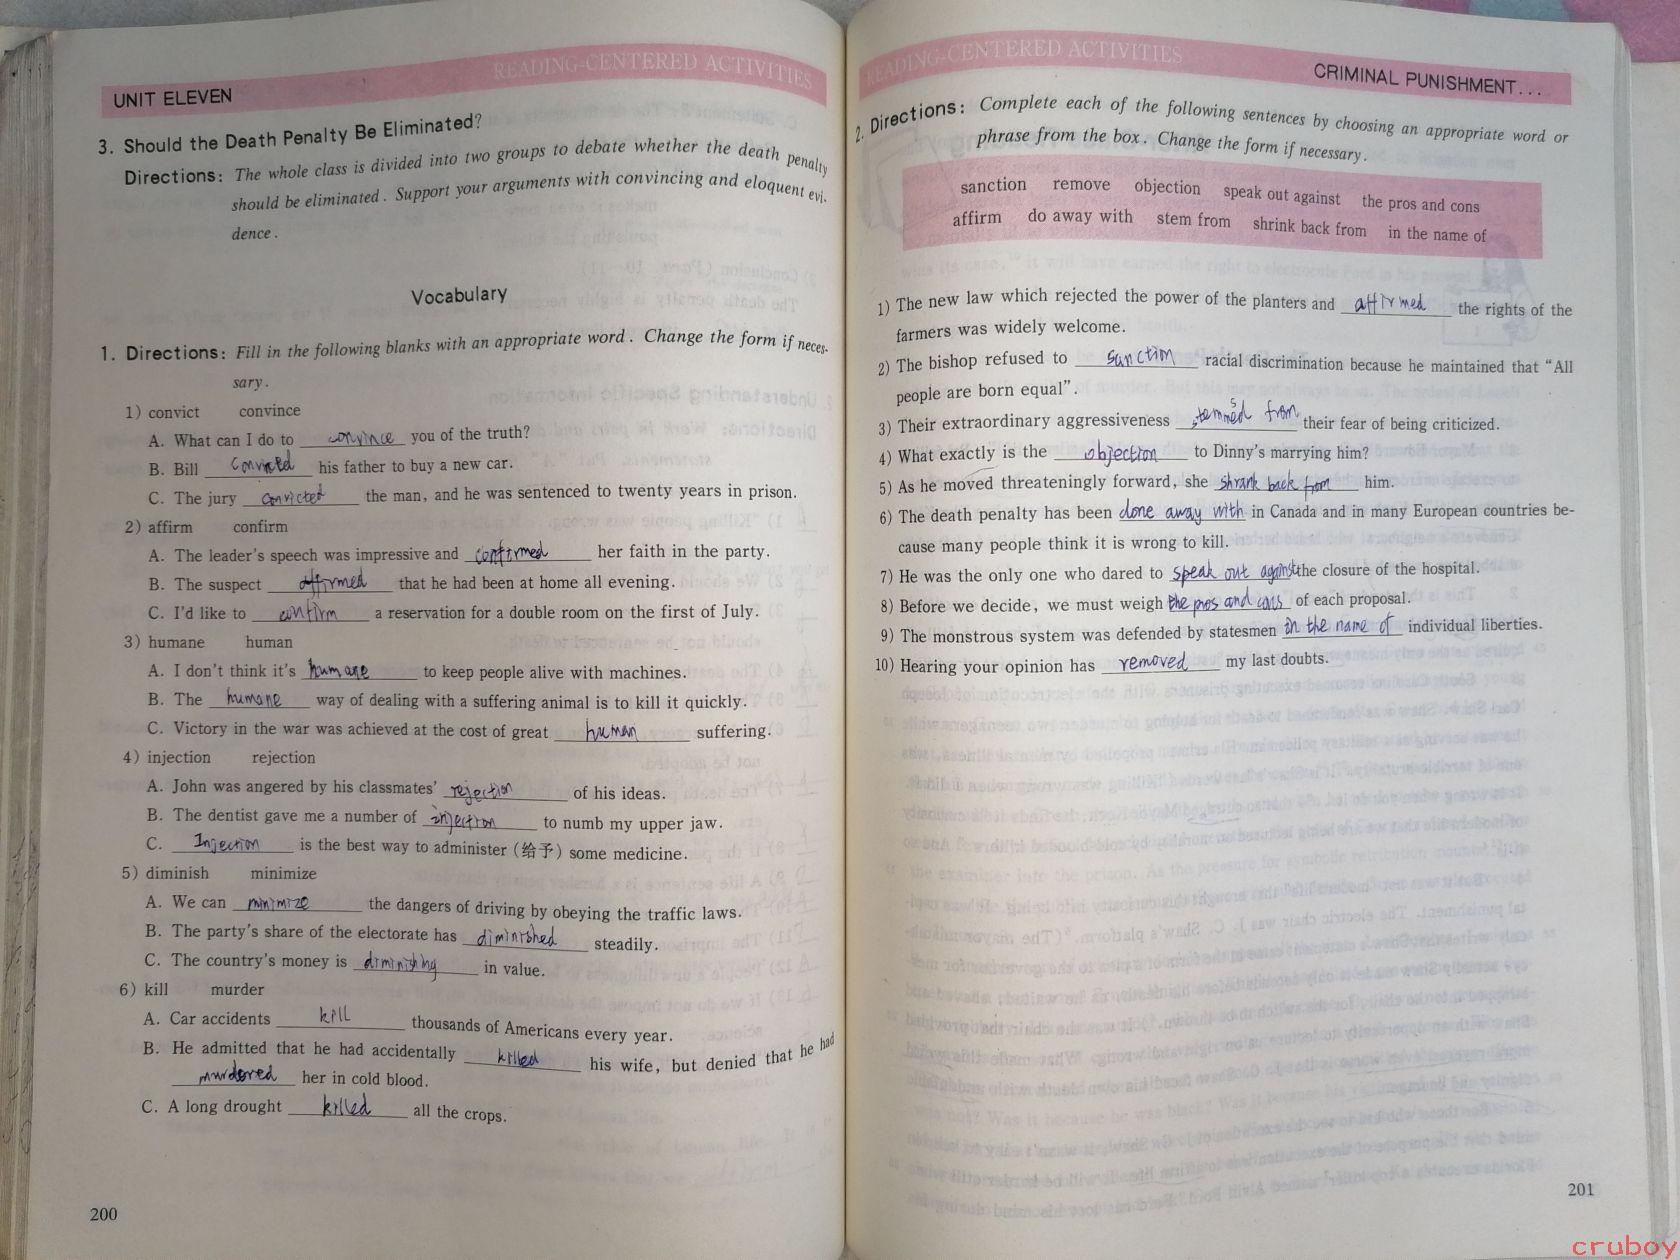 READING-CENTERED ACTIVITIES
UNIT ELEVEN
3. Should the Death Penalty Be Eliminated?
Directions: The whole class is divided into two groups to debate whether the death penalty
should be eliminated. Support your arguments with convincing and eloquent evi-
dence.
Vocabulary
1. Directions: Fill in the following blanks with an appropriate word. Change the form if neces-
sary.
1) convict convince
A. What can I do to convince you of the truth?
B. Bill his father to buy a new car.
C. The jury convicted the man, and he was sentenced to twenty years in prison.
2) affirm confirm
A. The leader's speech was impressive and confirmed her faith in the party.
B. The suspect affirmed that he had been at home all evening.
C. I'd like to confirm a reservation for a double room on the first of July.
3) humane human
A. I don't think it's humane to keep people alive with machines.
B. The humane way of dealing with a suffering animal is to kill it quickly.
C. Victory in the war was achieved at the cost of great human suffering.
4) injection rejection
A. John was angered by his classmates' rejection of his ideas.
B. The dentist gave me a number of injection to numb my upper jaw.
C. Injection is the best way to administer (给予) some medicine.
5) diminish minimize
A. We can minimize the dangers of driving by obeying the traffic laws.
B. The party's share of the electorate has diminished steadily.
C. The country's money is diminishing in value.
6) kill murder
A. Car accidents kill thousands of Americans every year.
B. He admitted that he had accidentally killed his wife, but denied that he had
murdered her in cold blood.
C. A long drought killed all the crops.
200
READING-CENTERED ACTIVITIES
CRIMINAL PUNISHMENT...
2. Directions: Complete each of the following sentences by choosing an appropriate word or
phrase from the box. Change the form if necessary.
sanction remove objection speak out against the pros and cons
affirm do away with stem from shrink back from in the name of
1) The new law which rejected the power of the planters and affirmed the rights of the
farmers was widely welcome.
2) The bishop refused to sanction racial discrimination because he maintained that "All
people are born equal".
3) Their extraordinary aggressiveness stemmed from their fear of being criticized.
4) What exactly is the objection to Dinny's marrying him?
5) As he moved threateningly forward, she shrank back from him.
6) The death penalty has been done away with in Canada and in many European countries be-
cause many people think it is wrong to kill.
7) He was the only one who dared to speak out against the closure of the hospital.
8) Before we decide, we must weigh the pros and cons of each proposal.
9) The monstrous system was defended by statesmen in the name of individual liberties.
10) Hearing your opinion has removed my last doubts.
201
cruboy